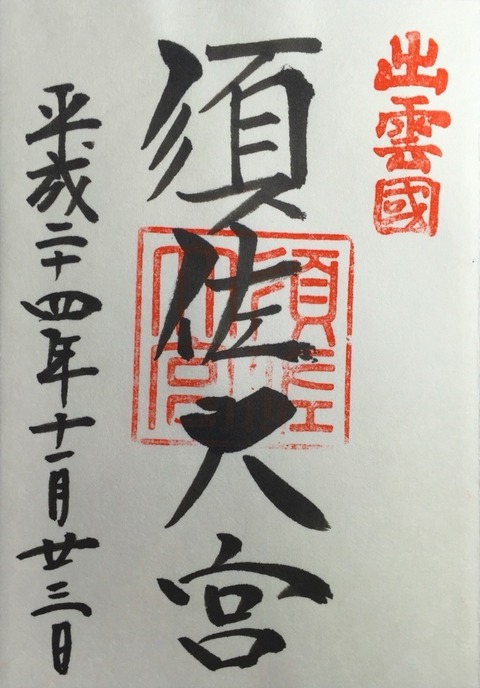 出雲國
須佐大宮
須佐大宮
平成二十四年十一月廿三日